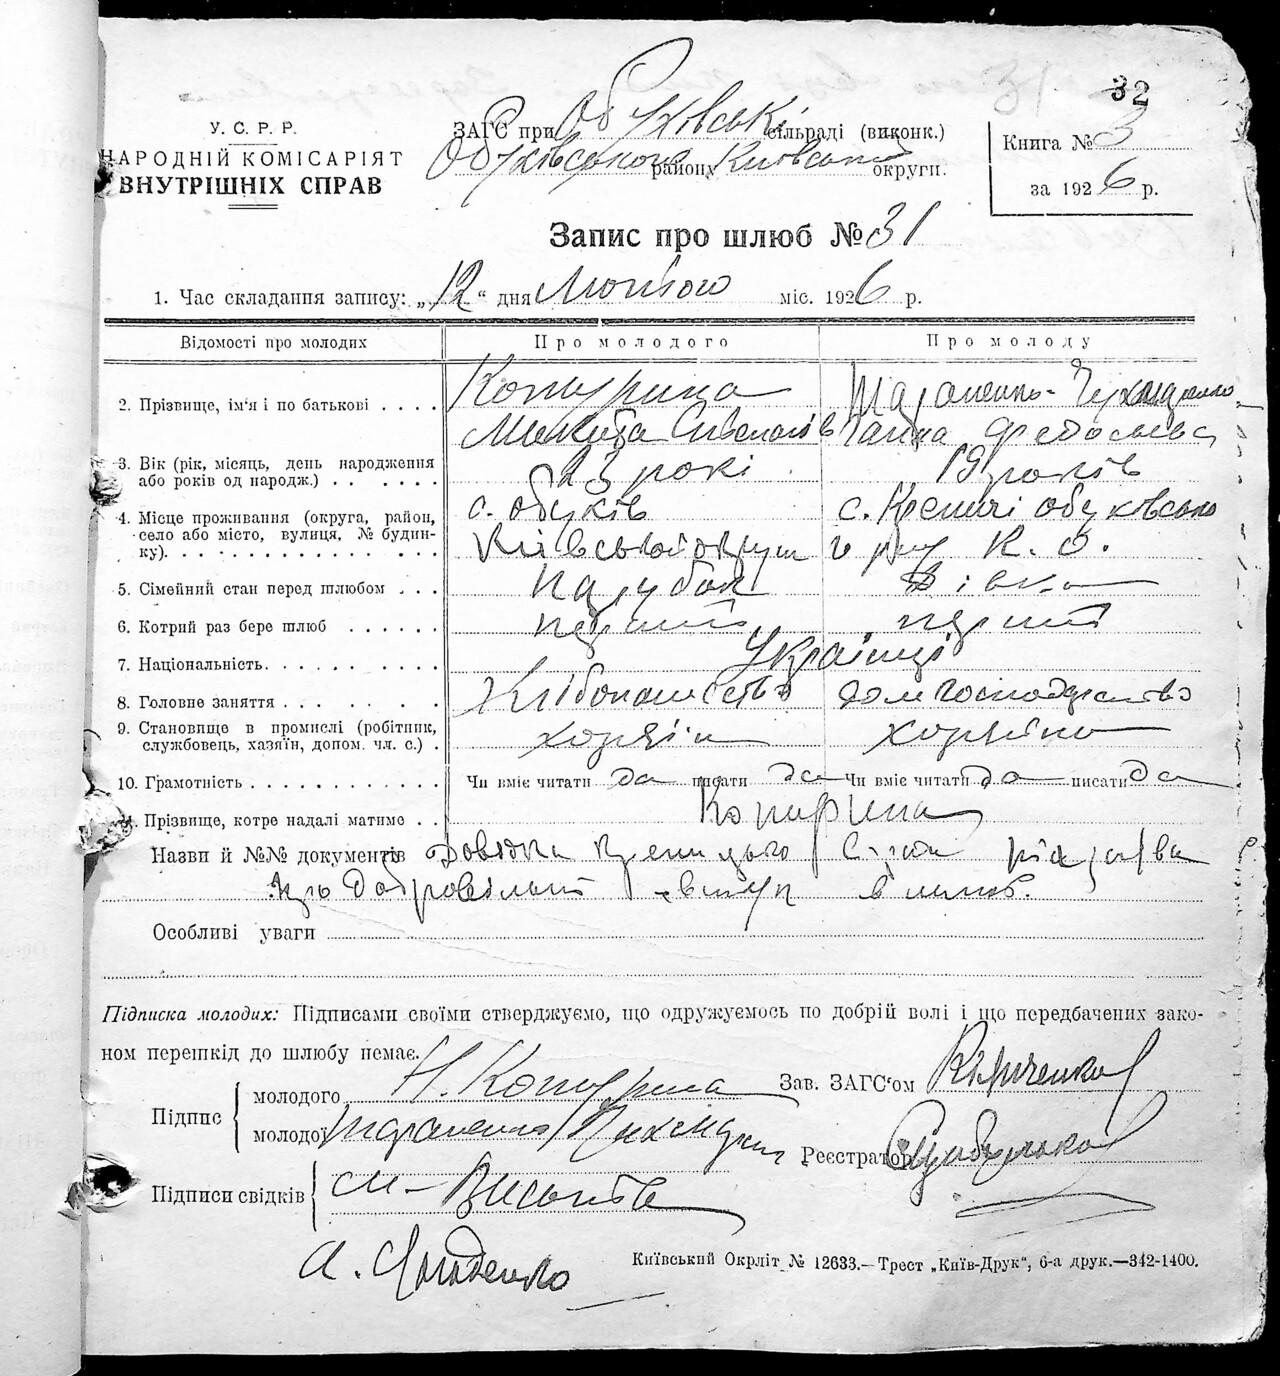 32
У. С. Р. Р.
НАРОДНІЙ КОМІСАРІЯТ
ВНУТРІШНІХ СПРАВ
ЗАГС при Обухівські сільраді (виконк.)
Обухівського району Київської округи.
Книга № 3
за 1926 р.
Запис про шлюб № 31
1. Час складання запису: „12“ дня Лютого міс. 1926 р.
Відомості про молодих Про молодого Про молоду
2. Прізвище, ім'я і по батькові . . . .
Микита Ганна Федосьева
3. Вік (рік, місяць, день народження
або років од народж.) . . . . . . 23 рокі 19 років
4. Місце проживання (округа, район,
село або місто, вулиця, № будин-
ку). . . . . . . . . . . . . .
с. Обухів с. Креничі Обухівсько
Київськой округи го р-ну К. О.
5. Сімейний стан перед шлюбом . . . Парубок Дівка
6. Котрий раз бере шлюб . . . . . . перший перший
7. Національність. . . . . . . . . Українці
8. Головне заняття . . . . . . . Хлібопашество домгосподарство
9. Становище в промислі (робітник,
службовець, хазяїн, допом. чл. с.) . хозяїн хозяйка
10. Грамотність . . . . . . . . . . . Чи вміє читати да писати да Чи вміє читати да писати да
11. Прізвище, котре надалі матиме . .
Назви й №№ документів Довідка Креницького
про добровільний вступ в шлюб.
Особливі уваги
Підписка молодих: Підписами своїми стверджуємо, що одружуємось по добрій волі і що передбачених зако-
ном перешкід до шлюбу немає.
Підпис
молодого Н.
молодої
Зав. ЗАГС'ом Кириченко
Реєстратор
Підписи свідків
М.
А.
Київський Окрліт № 12633.—Трест „Київ-Друк“, 6-а друк.—342-1400.